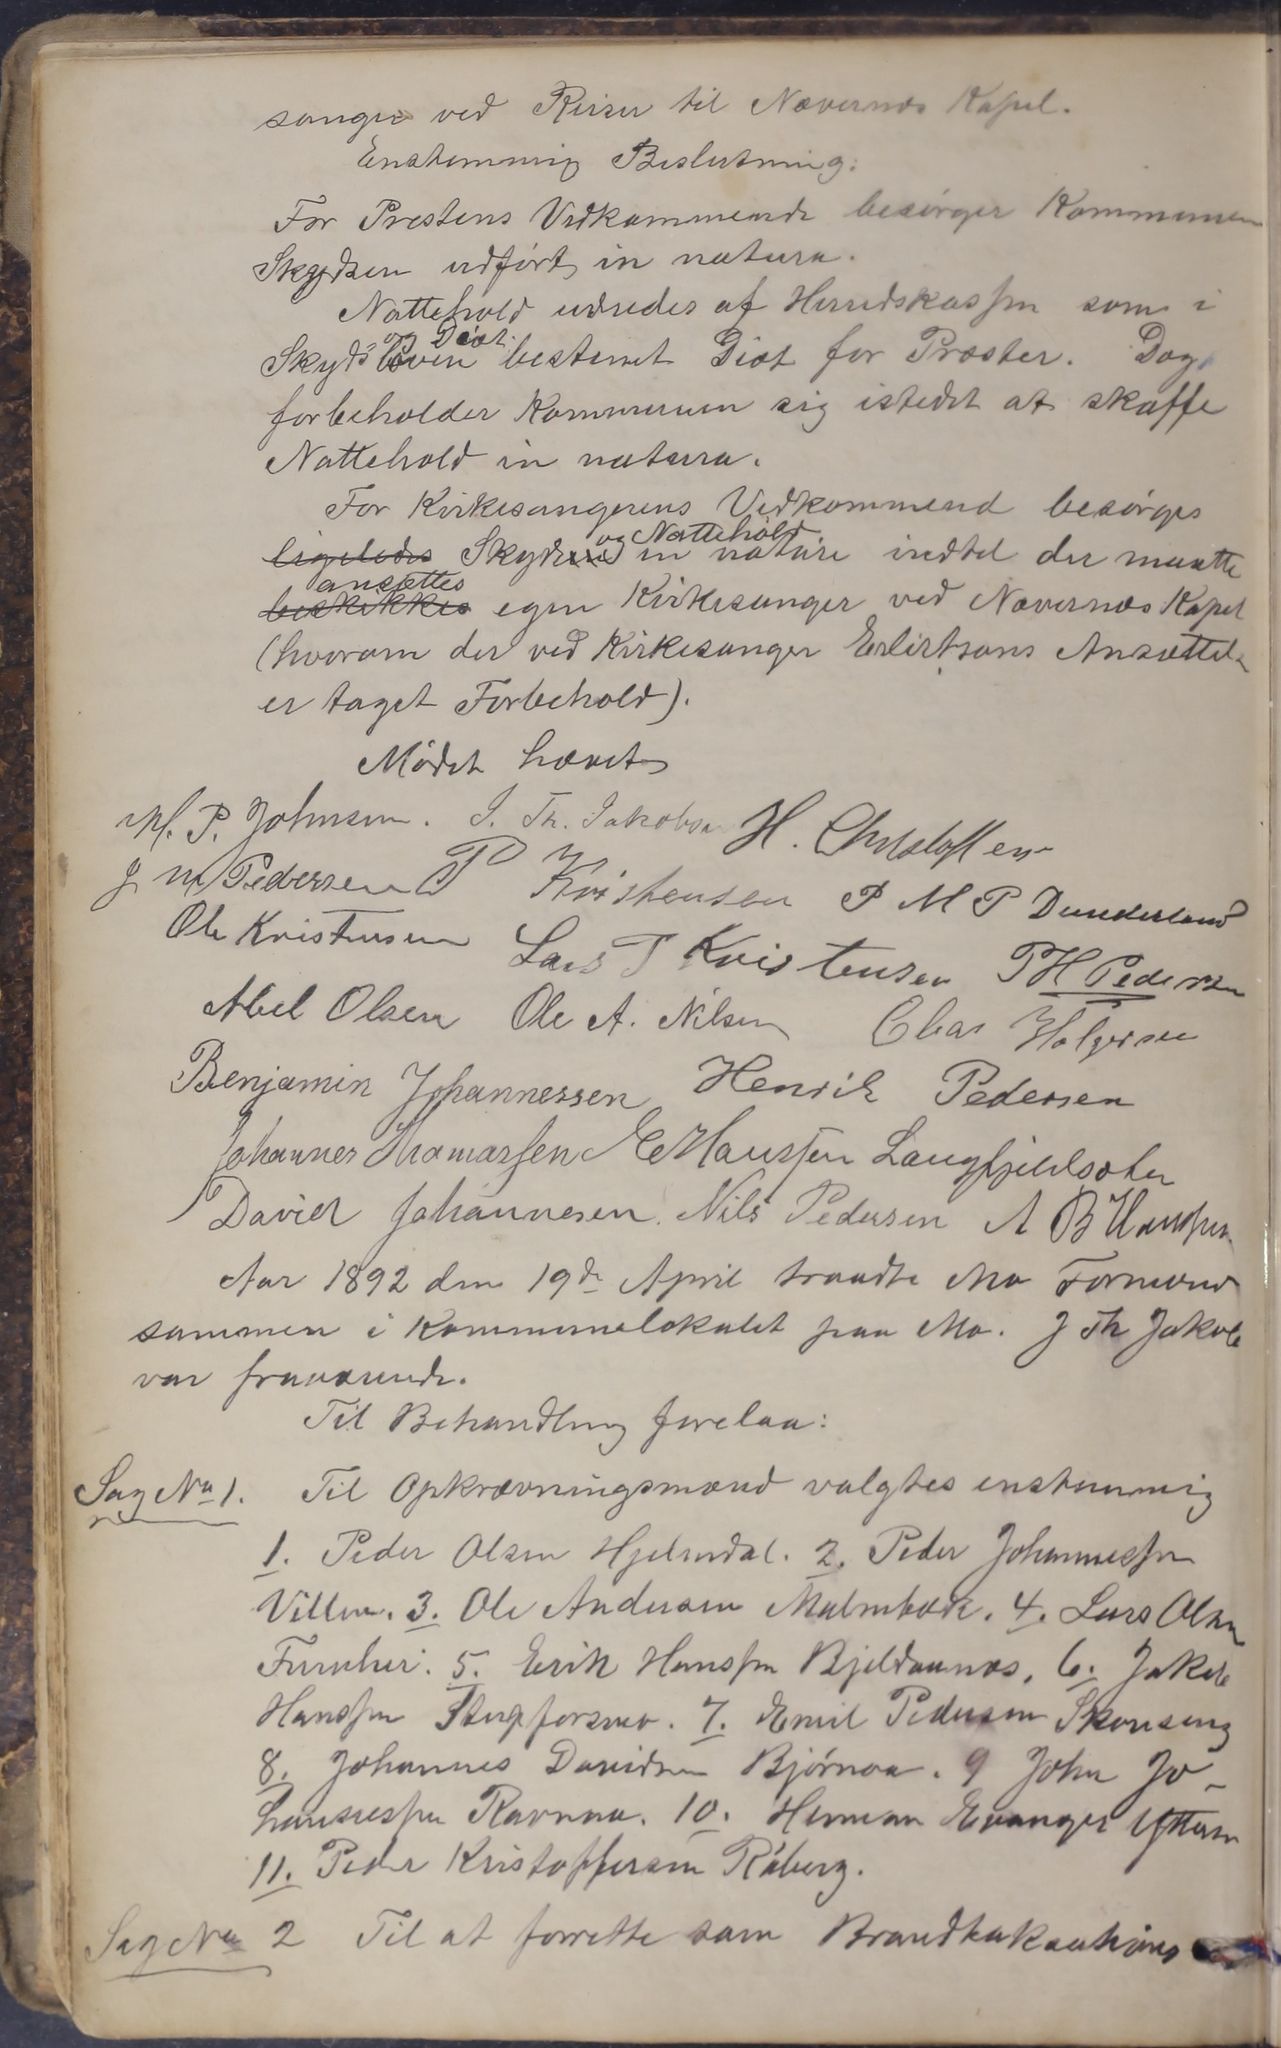 sanger ved Reiser til Nævernæs Kapel.
Enstemmig Beslutning:
For Prestens Vedkommende besørger Kommunen
Skydsen udført in natura.
Nattehold udredes af Herredskassen som i
Skyds og Diæt. loven bestemt Diæt for Præster. Dog
forbeholder Kommunen sig istedet at skaffe
Nattehold in natura.
For Kirkesangerens Vedkommend besørges
ligeledes Skydsen og Nattehold in natura indtil der maatte
ansættes
beskikkes egen Kirkesanger ved Nævernæs Kapel
(hvorom der ved Kirkesanger Ansættelse
er taget Forbehold).
Mødet hævet
P. Johnsen. J. Th. Jakobsen H. Christoffersen
J M Pedersen P Kristensen P M P Dunderland
Ole Kristensen Lars T Kristensen P H Pedersen
Abel Olsen Ole A. Nilsen Clas Holgersen
Benjamin Johannessen Henrik Pedersen
Johannes Thomassen E Hanssen Langfjeldsæter
David Johannesen. Nils Pedersen A B Hanssen
Aar 1892 den 19de April traadte Mo Formænd
sammen i Kommunelokalet paa Mo. J Th Jakob
var fraværende.
Til Behandling forelaa:
Sag No 1. Til Opkrævningsmænd valgtes enstemmig
1. Peder Olsen Hjelmdal. 2. Peder Johannessen
Villen. 3. Ole Andersen Malmbæk. 4. Lars Olsen
Furuhei. 5. Erik Hanssen Bjeldaanæs. 6. Jakob
Hanssen Stupforsmo. 7. Emil Pedersen Skonseng
8. Johannes Davidsen Bjørnaa. 9 John Jo-
hannessen Ravnaa. 10. Herman Evanger Ytteren
11. Peder Kristoffersen Råberg.
Sag No 2 Til at forrette som Brandtakxations